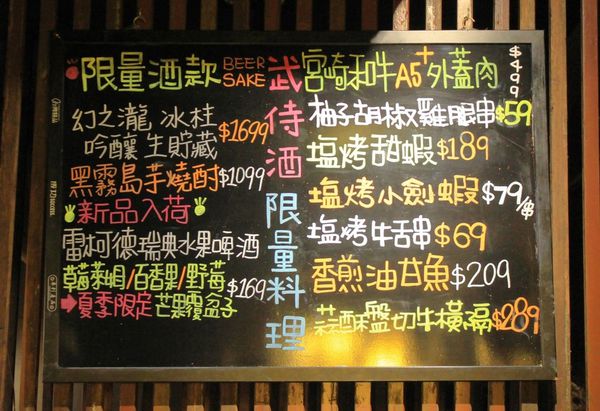 限量酒款 BEER SAKE
幻之瀧 冰柱
吟釀 生貯藏 $1699
黑霧島芋燒酎 $1099
新品入荷
雷柯德瑞典水果啤酒
草莓萊姆/百香果/野莓 $169
夏季限定 芒果覆盆子
武侍酒
限量料理
宮崎和牛A5+外蓋肉 $499
柚子胡椒雞腿串$59
塩烤甜蝦 $189
塩烤小劍蝦 $79/串
塩烤牛舌串 $69
香煎油甘魚 $209
蒜酥盤切牛橫膈 $289